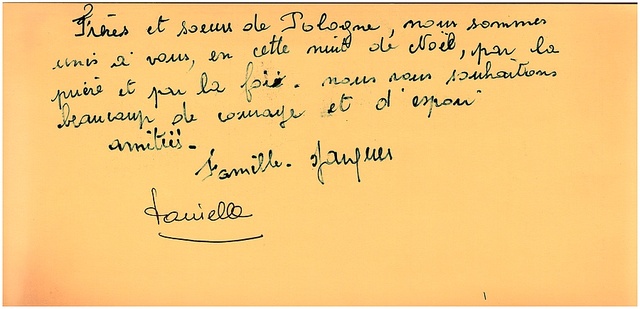 Frères et soeurs de Pologne, nous sommes
unis à vous, en cette nuit de Noël, par la
prière et par la foi. nous vous souhaitons
beaucoup de courage et d'espoir
amitiés.
Famille. Jacques
Danielle